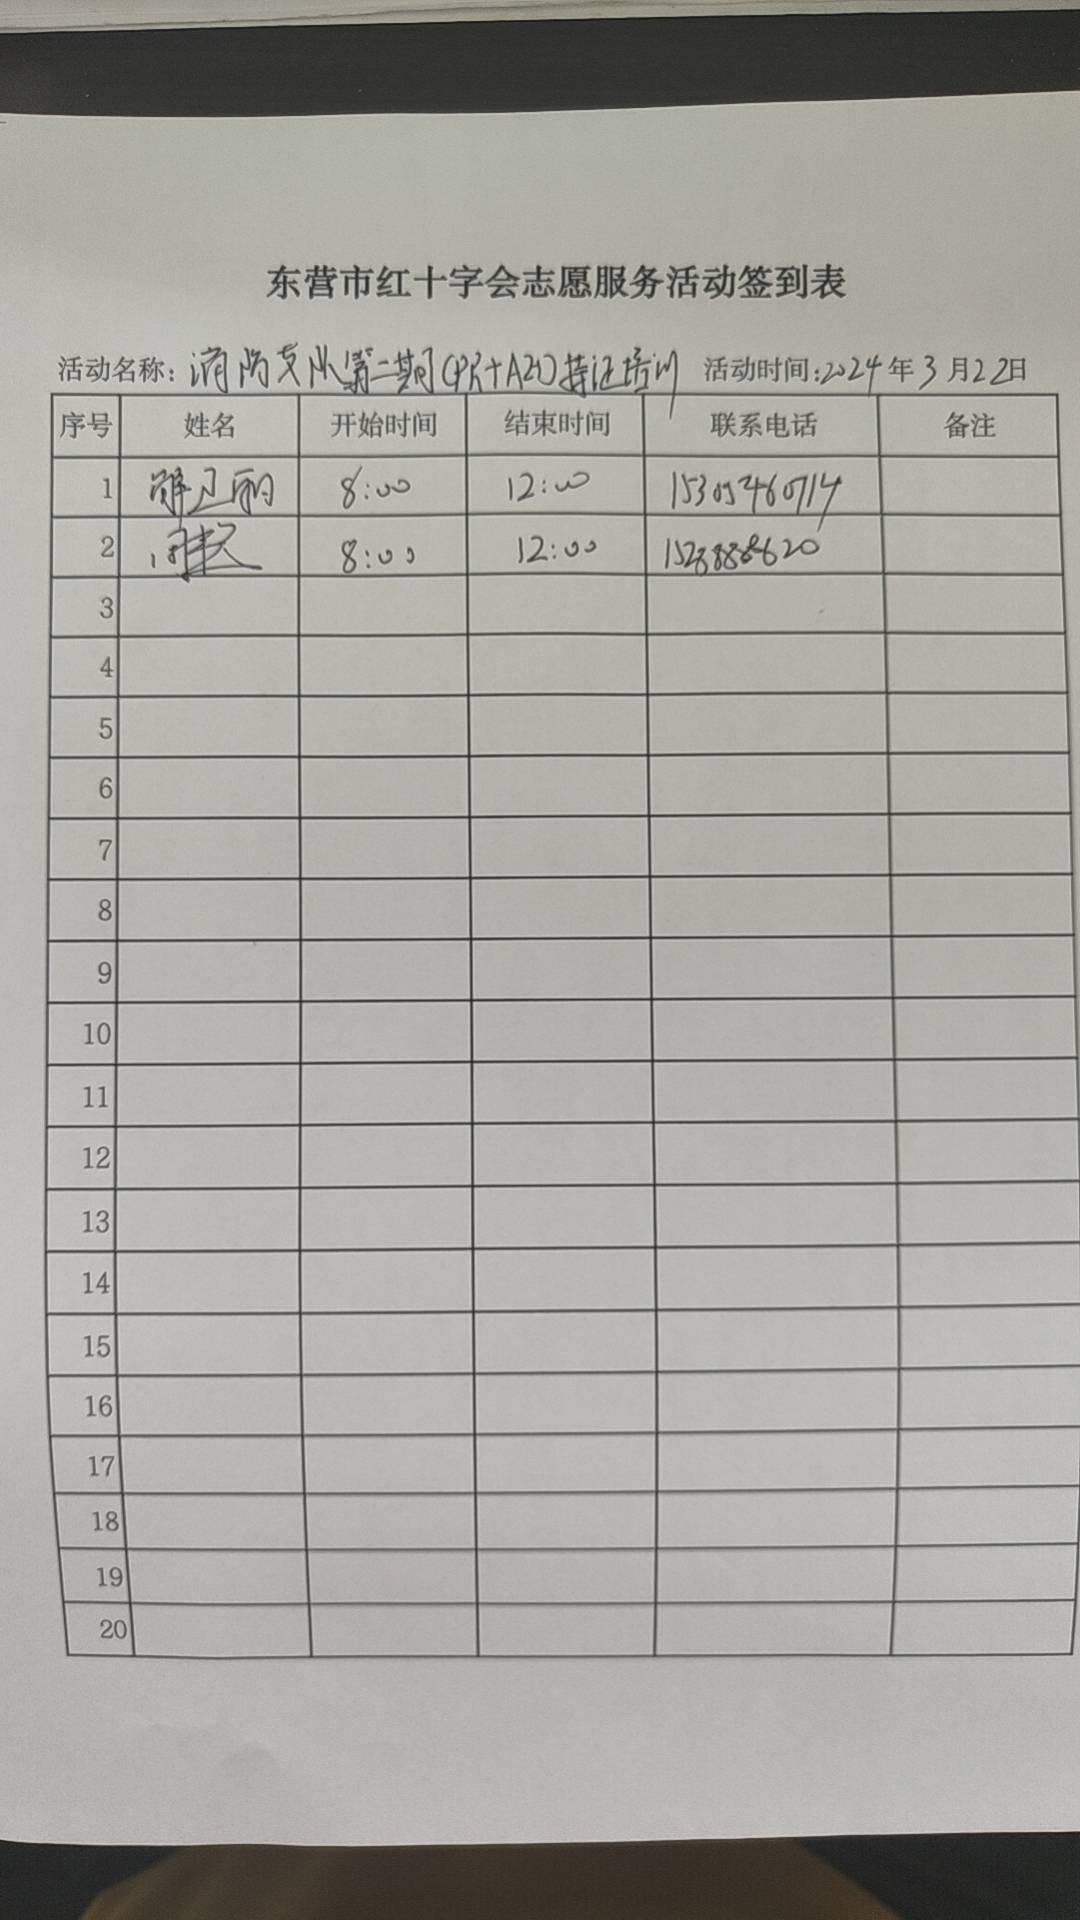 东营市红十字会志愿服务活动签到表
活动名称：消防支队第二期(CPR+AED)持证培训 活动时间:2024年3月22日
序号 姓名 开始时间 结束时间 联系电话 备注
1 卫丽 8:00 12:00 15305460714
2 8:00 12:00 1528888620
3
4
5
6
7
8
9
10
11
12
13
14
15
16
17
18
19
20